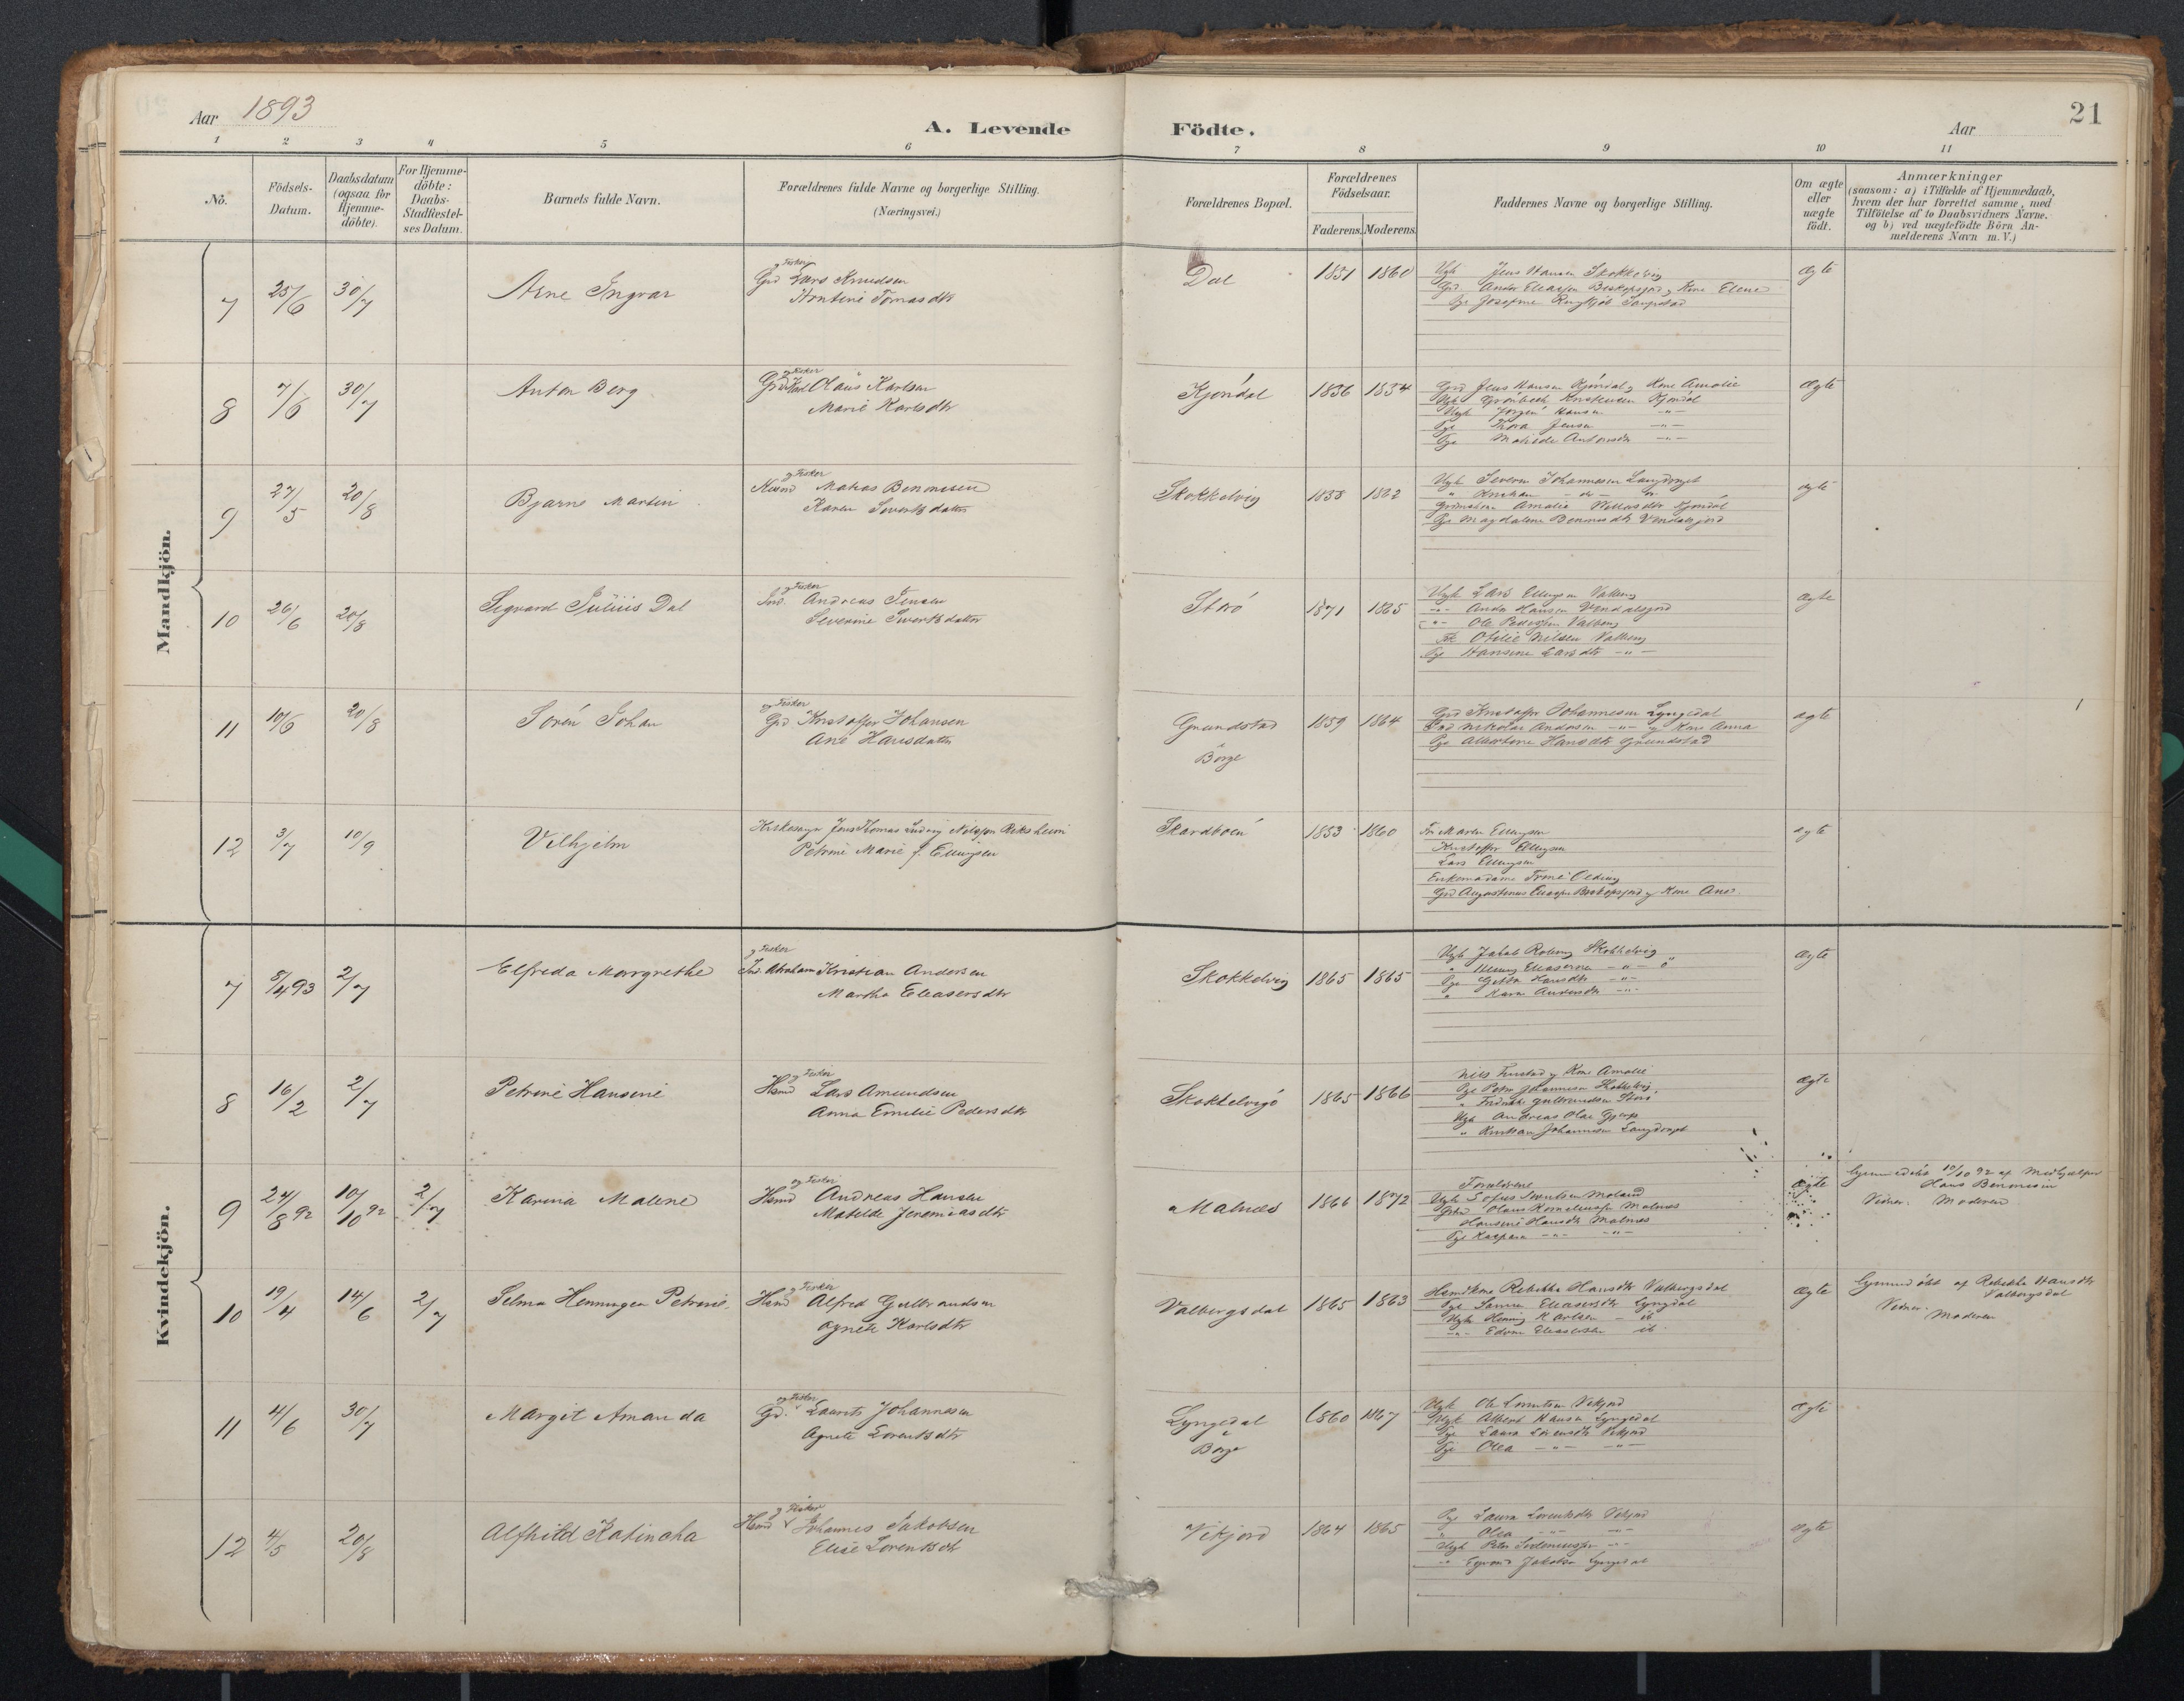 Aar 1893
A. Levende Födte.
Aar
21
1 2 3 4 5 6 7 8 9 10 11
No.
Födsels-
Datum.
Daabsdatum
(ogsaa for
Hjemme-
döbte).
For Hjemme-
döbte:
Daabs-
Stadfæstel-
ses Datum.
Barnets fulde Navn.
Forældrenes fulde Navne og borgerlige Stilling.
(Næringsvei.)
Forældrenes Bopæl.
Forældrenes
Födselsaar.
Faderens. Moderens.
Faddernes Navne og borgerlige Stilling.
Om ægte
eller
uægte
födt.
Anmærkninger
(saasom: a) i Tilfælde af Hjemmedaab,
hvem der har forrettet samme, med
Tilföielse af to Daabsvidners Navne.
og b) ved uægtefödte Börn An-
melderens Navn m. V.)
Mandkjön.
7 25/6 30/7 Arne Ingvar
og Fisker
Grd Lars Knudsen
Tomasdtr
Dal 1851 1860
Ugk Jens Hansen Skokkelvig
Grd Andor Eleasen Boskopsjord og Kone Elene
Pge Josefine
ægte
8 7/6 30/7 Anton Berg
og Fisker
Grd Karl Olaus Karlsen
Marie Karlsdtr
Kjöndal 1856 1854
Grd Jens Hansen Kjöndal og Kone Amalie
Ugk Grönbeck Kristensen Kjöndal
Ugk Jörgen Hansen -"-
Pge Thora Jensen -"-
Pge Matilde Antonsdtr -"-
ægte
9 27/5 20/8 Bjarne Martin
og Fisker
Husmd Matias Benonisen
Karen Sivertsdatter
Skokkelvig 1858 1862
Ugk Severin Johannesen Langdraget
" Kristian - do -
Amalie Kjöndal
Pge Magdalene Benonisdtr Vendalsjord
ægte
10 26/6 20/8 Sigvard Julius Dal
og Fisker
Ind. Andreas Jensen
Severine Sivertsdatter
Störö 1871 1865
Ugk Lars Ellingsen Valberg
-"- Andor Hansen Vendalsjord
-"- Ole Pedersen Valberg
Otelie Nilsen Valberg
Pge Hansine Larsdtr -"-
ægte
11 10/6 20/8 Sören Johan
og Fisker
Grd Kristoffer Johansen
Ane Hansdatter
Grundstad
i
Borge
1859 1864
Grd Kristoffer Johannesen Lyngedal
Grd Nikolai Andersen -"- og Kone Anna
Pge Albertine Hansdtr Grundstad
ægte
12 3/7 10/9 Vilhjelm
Kirkesanger Jens Thomas Ludvig Nilssen Reksheim
Petrine Marie f. Ellingsen
Skardboen 1853 1860
Fr. Maren Ellingsen
Kristoffer Ellingsen
Lars Ellingsen
Enkemadame Trine
Grd Augustinus Boskopsjord og Kone Ane
ægte
Kvindekjön.
7 8/4 93 2/7 Elfreda Margrethe
og Fisker
Ind. Abraham Kristian Andersen
Martha Eleasersdtr
Skokkelvig 1865 1865
Ugk Jakob Skokkelvig
" Henning Eleasersen -"-
Pge Gitta Hansdtr -"-
" Karen Andersdtr -"-
ægte
8 16/2 2/7 Petrine Hansine
og Fisker
Hsmd Lars Amundsen
Anna Emilie Pedersdtr
Skokkelvig 1865 1866
Nils og Kone Amalie
Pge Petra Johannesen Skokkelvig
" Störö
Ugk Andreas Olai
" Kristian Johannesen Langdraget
ægte
9 24/8 92 10/10 92 2/7 Karina Malene
og Fisker
Hsmd Andreas Hansen
Matelde Jeremiasdtr
Malnes 1866 1872
Forældrene
Ugk Sofus Sivertsen Moland
Olaus Korneliussen Malnes
Hansine Hansdtr Malnes
Pge Kaspara -"- -"-
ægte
Hjemmedöbt 10/10 92 af Medhjælper
Hans Benonisen
Vidner: Moderen
10 19/4 14/6 2/7 Selma Henningea Petrine
og Fisker
Hsmd Alfred Gulbrandsen
Agnete Karlsdtr
Valbergsdal 1865 1863
Hsmdkone Rebekka Hansdtr Valbergsdal
Pge Eleasersdtr Lyngdal
Ugk Henning Karlsen - ib
-"- Edvin Eleasersen ib
ægte
Hjemmedöbt af Rebekka Hansdtr
Valbergsdal
Vidner:
Moderen
11 4/6 30/7 Margit Amanda
og Fisker
Gd. Laurits Johannesen
Agnete Lorentsdtr
Lyngedal
i
Borge
1860 1867
Ugk Ole Lorentsen Vikjord
Ugk Albert Hansen Lyngedal
Pge Laura Lorentsdtr Vikjord
Pge Olea -"- -"-
ægte
12 4/5 20/8 Alfhild Katincka
og Fisker
Hsmd Johannes Jakobsen
Elise Lorentsdtr
Vikjord 1864 1865
Pge Laura Lorentsdtr Vikjord
" Olea -"- -"-
Ugk Peter -"-
-"- Jakobsen Lyngedal
ægte